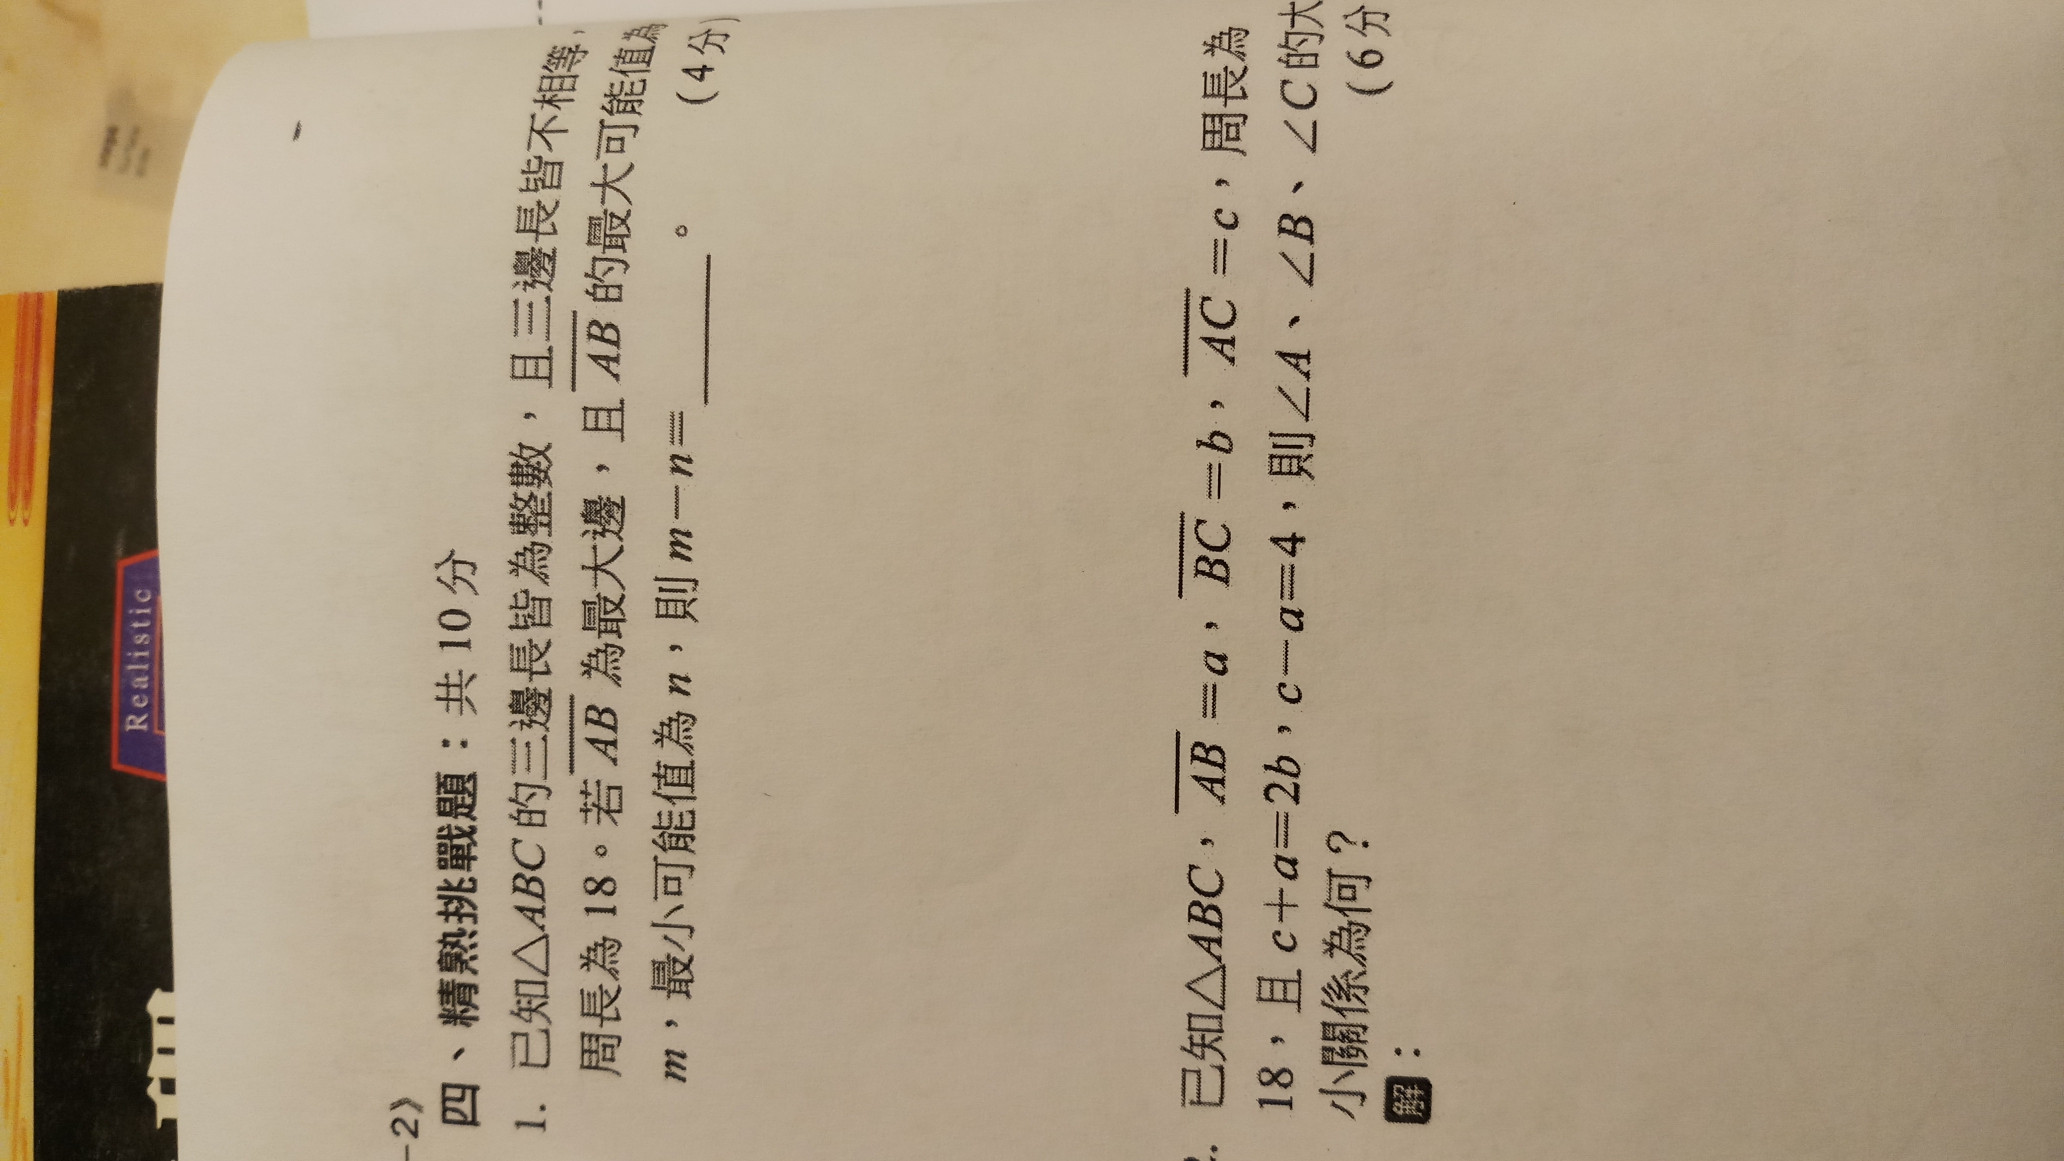 -2》
四、精熟挑戰題：共 10 分
1. 已知△ABC 的三邊長皆為整數，且三邊長皆不相等，
周長為 18。若 AB 為最大邊，且 AB 的最大可能值為
m，最小可能值為 n，則 m－n＝＿＿＿＿。
(4 分)
2. 已知△ABC，AB＝a，BC＝b，AC＝c，周長為
18，且 c＋a＝2b，c－a＝4，則∠A、∠B、∠C 的大
小關係為何？
(6 分
解：
Realistic